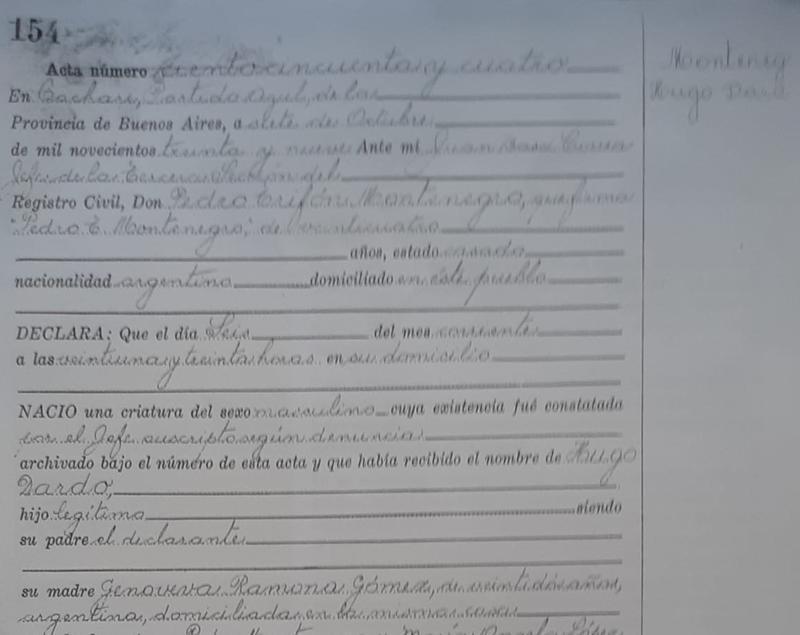 154
Montenegro
Hugo Dardo
Acta número ciento cincuenta y cuatro
En Cacharí, Partido Azul, de la
Provincia de Buenos Aires, a siete de Octubre
de mil novecientos treinta y nueve Ante mí Juan José
Jefe de la Tercera Sección del
Registro Civil, Don Pedro Crifón Montenegro, que firma
"Pedro C. Montenegro", de veinticuatro
años, estado casado
nacionalidad argentino domiciliado en este pueblo
DECLARA: Que el día Seis del mes corriente
a las veintiuna y treinta horas en su domicilio
NACIO una criatura del sexo masculino cuya existencia fué constatada
por el Jefe suscripto según denuncia
archivado bajo el número de esta acta y que había recibido el nombre de Hugo
Dardo,
hijo legítimo siendo
su padre el declarante
su madre Genoveva Ramona Gómez, de veintidós años,
argentina, domiciliada en la misma casa
María López